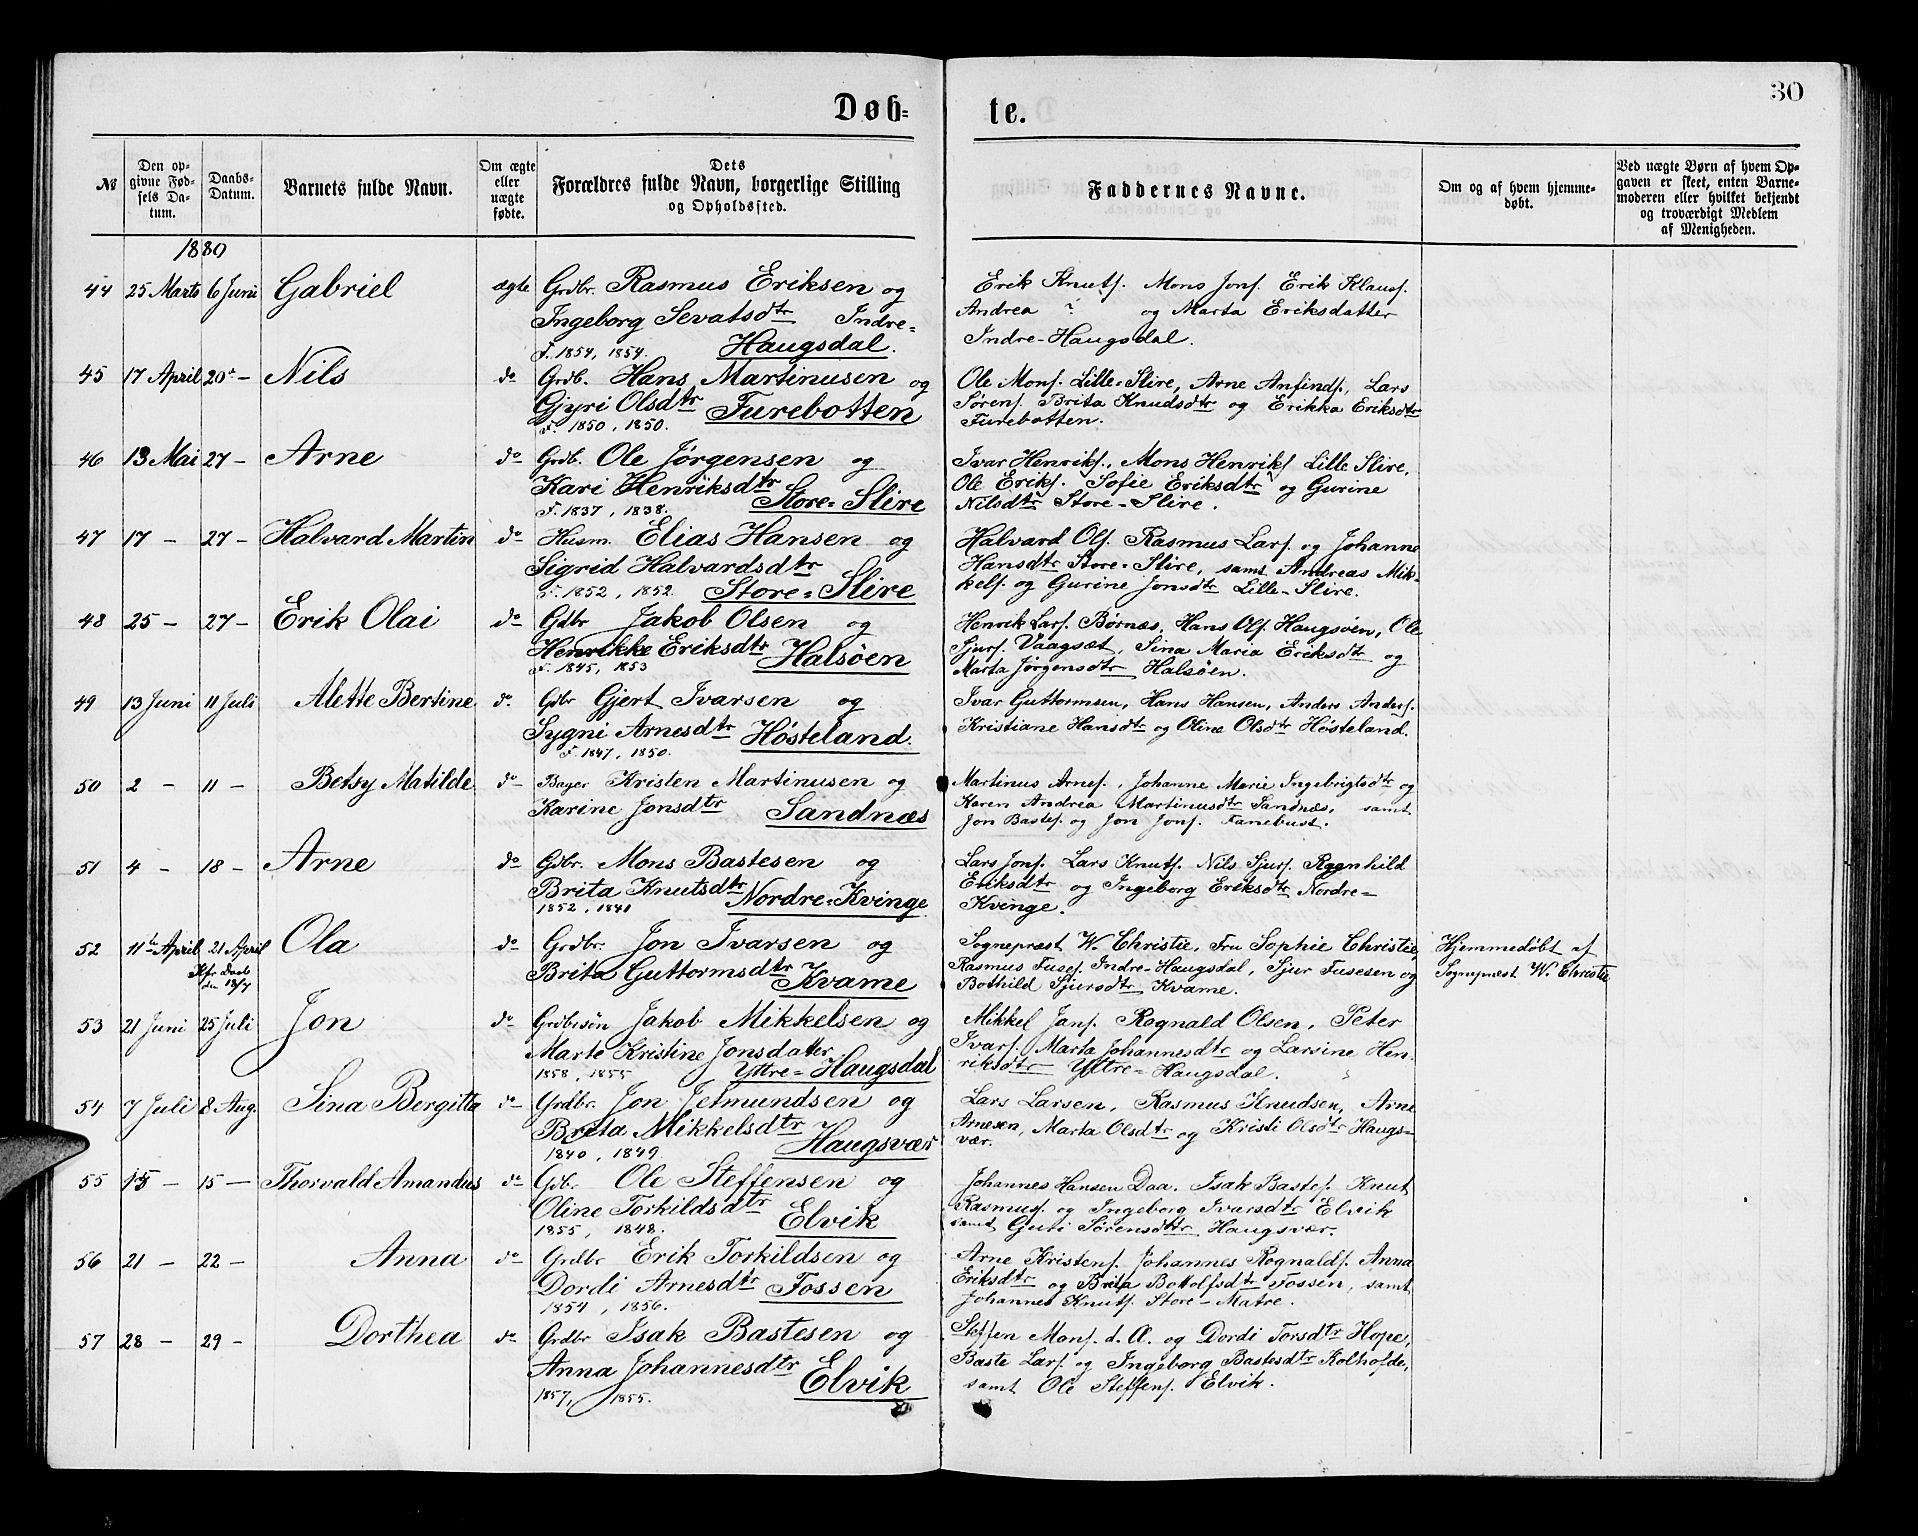 30
Døb=
te.
№
Den op-
givne Fød-
sels Da-
tum.
Daabs-
Datum.
Barnets fulde Navn.
Om ægte
eller
uægte
fødte.
Dets
Forældres fulde Navn, borgerlige Stilling
og Opholdssted.
Faddernes Navne.
Om og af hvem hjemme-
døbt.
Ved uægte Børn af hvem Op-
gaven er skeet, enten Barne-
moderen eller hvilket bekjendt
og troværdigt Medlem
af Menigheden.
1880
44 25 Marts 6 Juni Gabriel ægte Grdbr. Rasmus Eriksen og
Ingeborg Sevatsdtr Indre=
F. 1854, 1854. Haugsdal.
Erik Knuts. Mons Jons. Erik Klaus.
Andrea ? og Marta Eriksdatter
Indre-Haugsdal.
45 17 April 20 - Nils do Grdb. Hans Martinusen og
Gjyri Olsdtr Furebotten
F. 1850, 1850.
Ole Mons. Lille-Slire, Arne Anfinds., Lars
Sørens. Brita Knudsdtr og Erikka Eriksdtr
Furebotten.
46 13 Mai 27 - Arne do Grdb. Ole Jørgensen og
Kari Henriksdtr Store=Slire
F. 1837, 1838.
Ivar Henriks., Mons Henriks Lille Slire,
Ole Eriks. Sofie Eriksdtr og Gurine
Nilsdtr Store-Slire.
47 17 - 27 - Halvard Martin do Husm. Elias Hansen og
Sigrid Halvardsdtr
F. 1852, 1852. Store=Slire
Halvard Ols. Rasmus Lars. og Johanne
Hansdtr Store-Slire, samt Andreas Mik-
kels. og Gurine Jonsdtr Lille-Slire.
48 25 - 27 - Erik Olai do Gdbr Jakob Olsen og
Henrikke Eriksdtr Halsöen
F. 1845, 1853
Henrik Lars. Børnæs, Hans Ols. Haugsöen, Ole
Sjurs. Vaagsæt, Sina Maria Eriksdtr og
Marta Jørgensdtr Halsöen.
49 13 Juni 11 Juli Alette Bertine do Gdbr Gjert Ivarsen og
Sygni Arnesdtr Høsteland.
F. 1847, 1850.
Ivar Guttormsen, Hans Hansen, Anders Anders.
Kristiane Hansdtr og Oline Olsdtr Høsteland.
50 2 - 11 - Betsy Matilde do Kristen Martinusen og
Karine Jonsdtr Sandnæs
Martinus Arnes., Johanne Marie Ingebrigtsdtr og
Karen Andrea Martinusdtr Sandnæs, samt
Jon Bastes. og Jon Jons. Fanebust.
51 4 - 18 - Arne do Gdbr. Mons Bastesen og
Brita Knutsdtr Nordre=Kvinge
1852, 1840
Lars Jons. Lars Knuts. Nils Sjurs. Ragnhild
Eriksdtr og Ingeborg Eriksdtr Nordre-
Kvinge.
52 11te April 21 April Ola do Grdbr. Jon Ivarsen og
Kfr Daab
den 18/7
Brita Guttormsdtr Kvame
Sognepræst W. Christie, Fru Sophie Christie,
Rasmus Fuses. Indre-Haugsdal, Sjur Fusesen og
Bothild Sjursdtr Kvame.
Hjemmedøbt af
Sognepræst W. Christie
53 21 Juni 25 Juli Jon do Grdbrsön Jakob Mikkelsen og
Marte Kristine Jonsdatter
1858, 1855 Yttre=Haugsdal
Mikkel Jans. Rognald Olsen, Peter
Ivars. Marta Johannesdtr og Larsine Hen-
riksdtr Yttre-Haugsdal.
54 7 Juli 8 Aug. Sina Bergitta do Grdbr. Jon Jetmundsen og
Brita Mikkelsdtr
1840, 1849. Haugsvær
Lars Larsen, Rasmus Knudsen, Arne
Arnesen, Marta Olsdtr og Kristi Olsdtr Haugs-
vær.
55 15 - 15 - Thorvald Amandus do Gdbr Ole Steffensen og
Oline Torkildsdtr
1855, 1848. Elvik
Johannes Hansen Daa. Isak Bastes. Knut
Rasmus. og Ingeborg Ivarsdtr Elvik
samt Guri Sørensdtr Haugsvær.
56 21 - 22 - Anna do Grdbr Erik Torkildsen og
Dordi Arnesdtr Fossen
1854, 1856.
Arne Kristens. Johannes Rognalds. Anna
Eriksdtr og Brita Bottolfsdtr Fossen, samt
Johannes Knuts. Store-Matre.
57 28 - 29 - Dorthea do Grdbr Isak Bastesen og
Anna Johannesdtr
1857, 1855. Elvik
Steffen Mons. d. A. og Dordi Torsdtr Hope,
Baste Lars. og Ingeborg Bastesdtr Kolhofde,
samt Ole Steffens. Elvik.